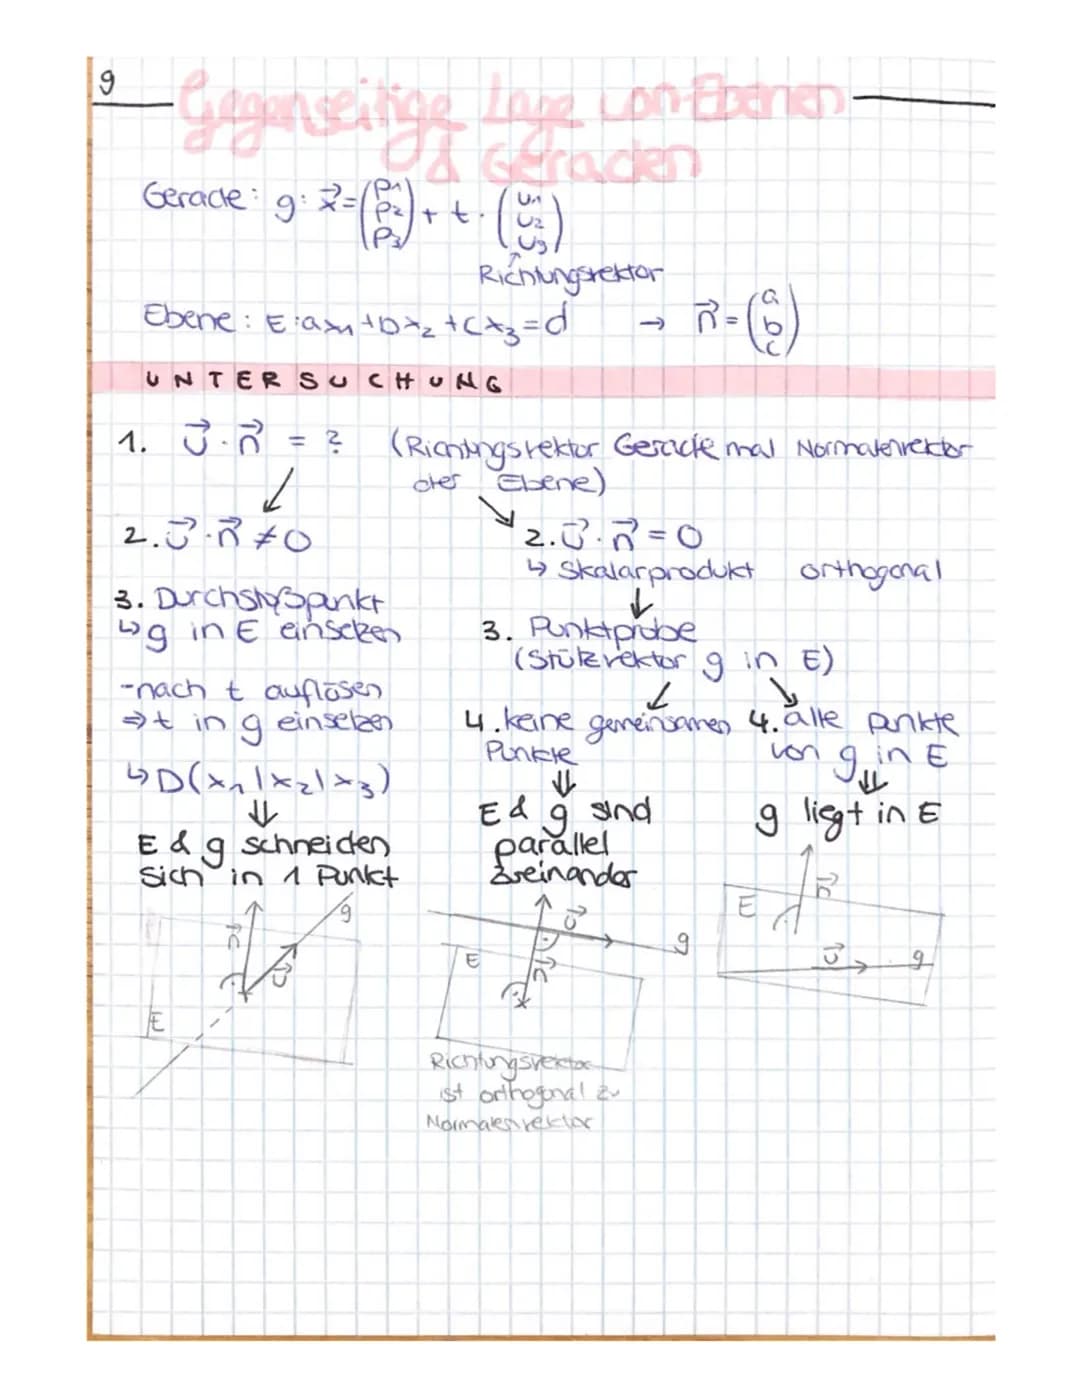 9
Gegenseitige Lage von Ebenen
& Geraden
Gerade: g: x⃗ = (p₁ p₂ p₃) + t · (u₁ u₂ u₃)
Richtungsvektor
Ebene: E: ax₁ + bx₂ + cx₃ = d → n⃗ = (a b c)
UNTERSUCHUNG
1. u⃗ · n⃗ = ? (Richtungsvektor Gerade mal Normalenvektor
der Ebene)
2. u⃗ · n⃗ ≠ 0
3. Durchstoßpunkt
↳ g in E einsetzen
- nach t auflösen
⇒ t in g einsetzen
↳ D(x₁|x₂|x₃)
⇓
E & g schneiden
sich in 1 Punkt
n⃗ g
u⃗
E
2. u⃗ · n⃗ = 0
↳ Skalarprodukt orthogonal
↓
3. Punktprobe
(Stützvektor g in E)
4. keine gemeinsamen
Punkte
⇓
E & g sind
parallel
zueinander
u⃗
g
E
n⃗
Richtungsvektor
ist orthogonal zu
Normalenvektor
4. alle punkte
von g in E
⇓
g liegt in E
n⃗
E
u⃗ g